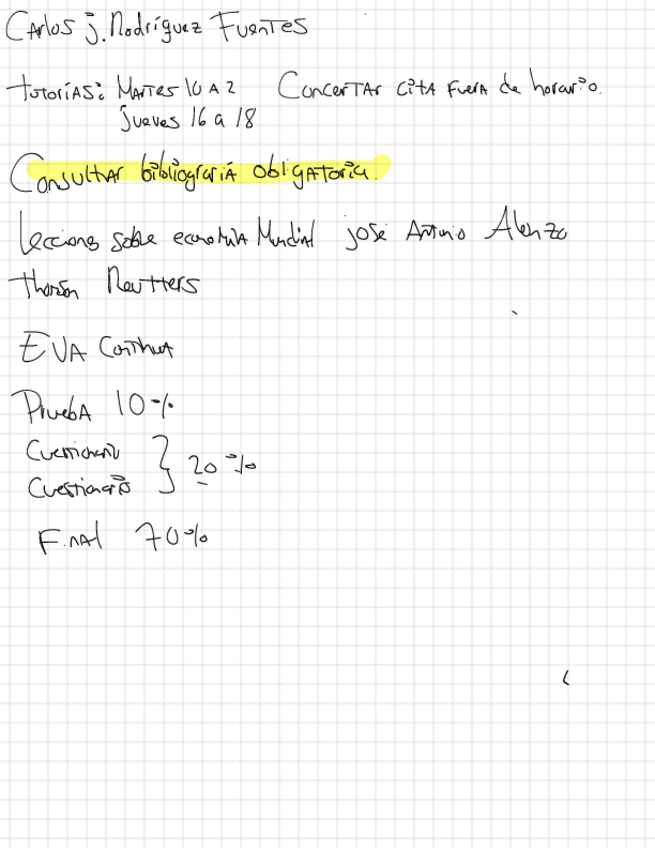 Carlos J. Rodríguez Fuentes
Tutorías: Martes 10 a 2 Concertar cita fuera de horario.
Jueves 16 a 18
Consultar bibliografía obligatoria.
Lecciones sobre economía Mundial José Antonio Alonzo
Thomson Reutters
EVA Continua
Prueba 10%
Cuestionario
Cuestionario } 20%
Final 70%